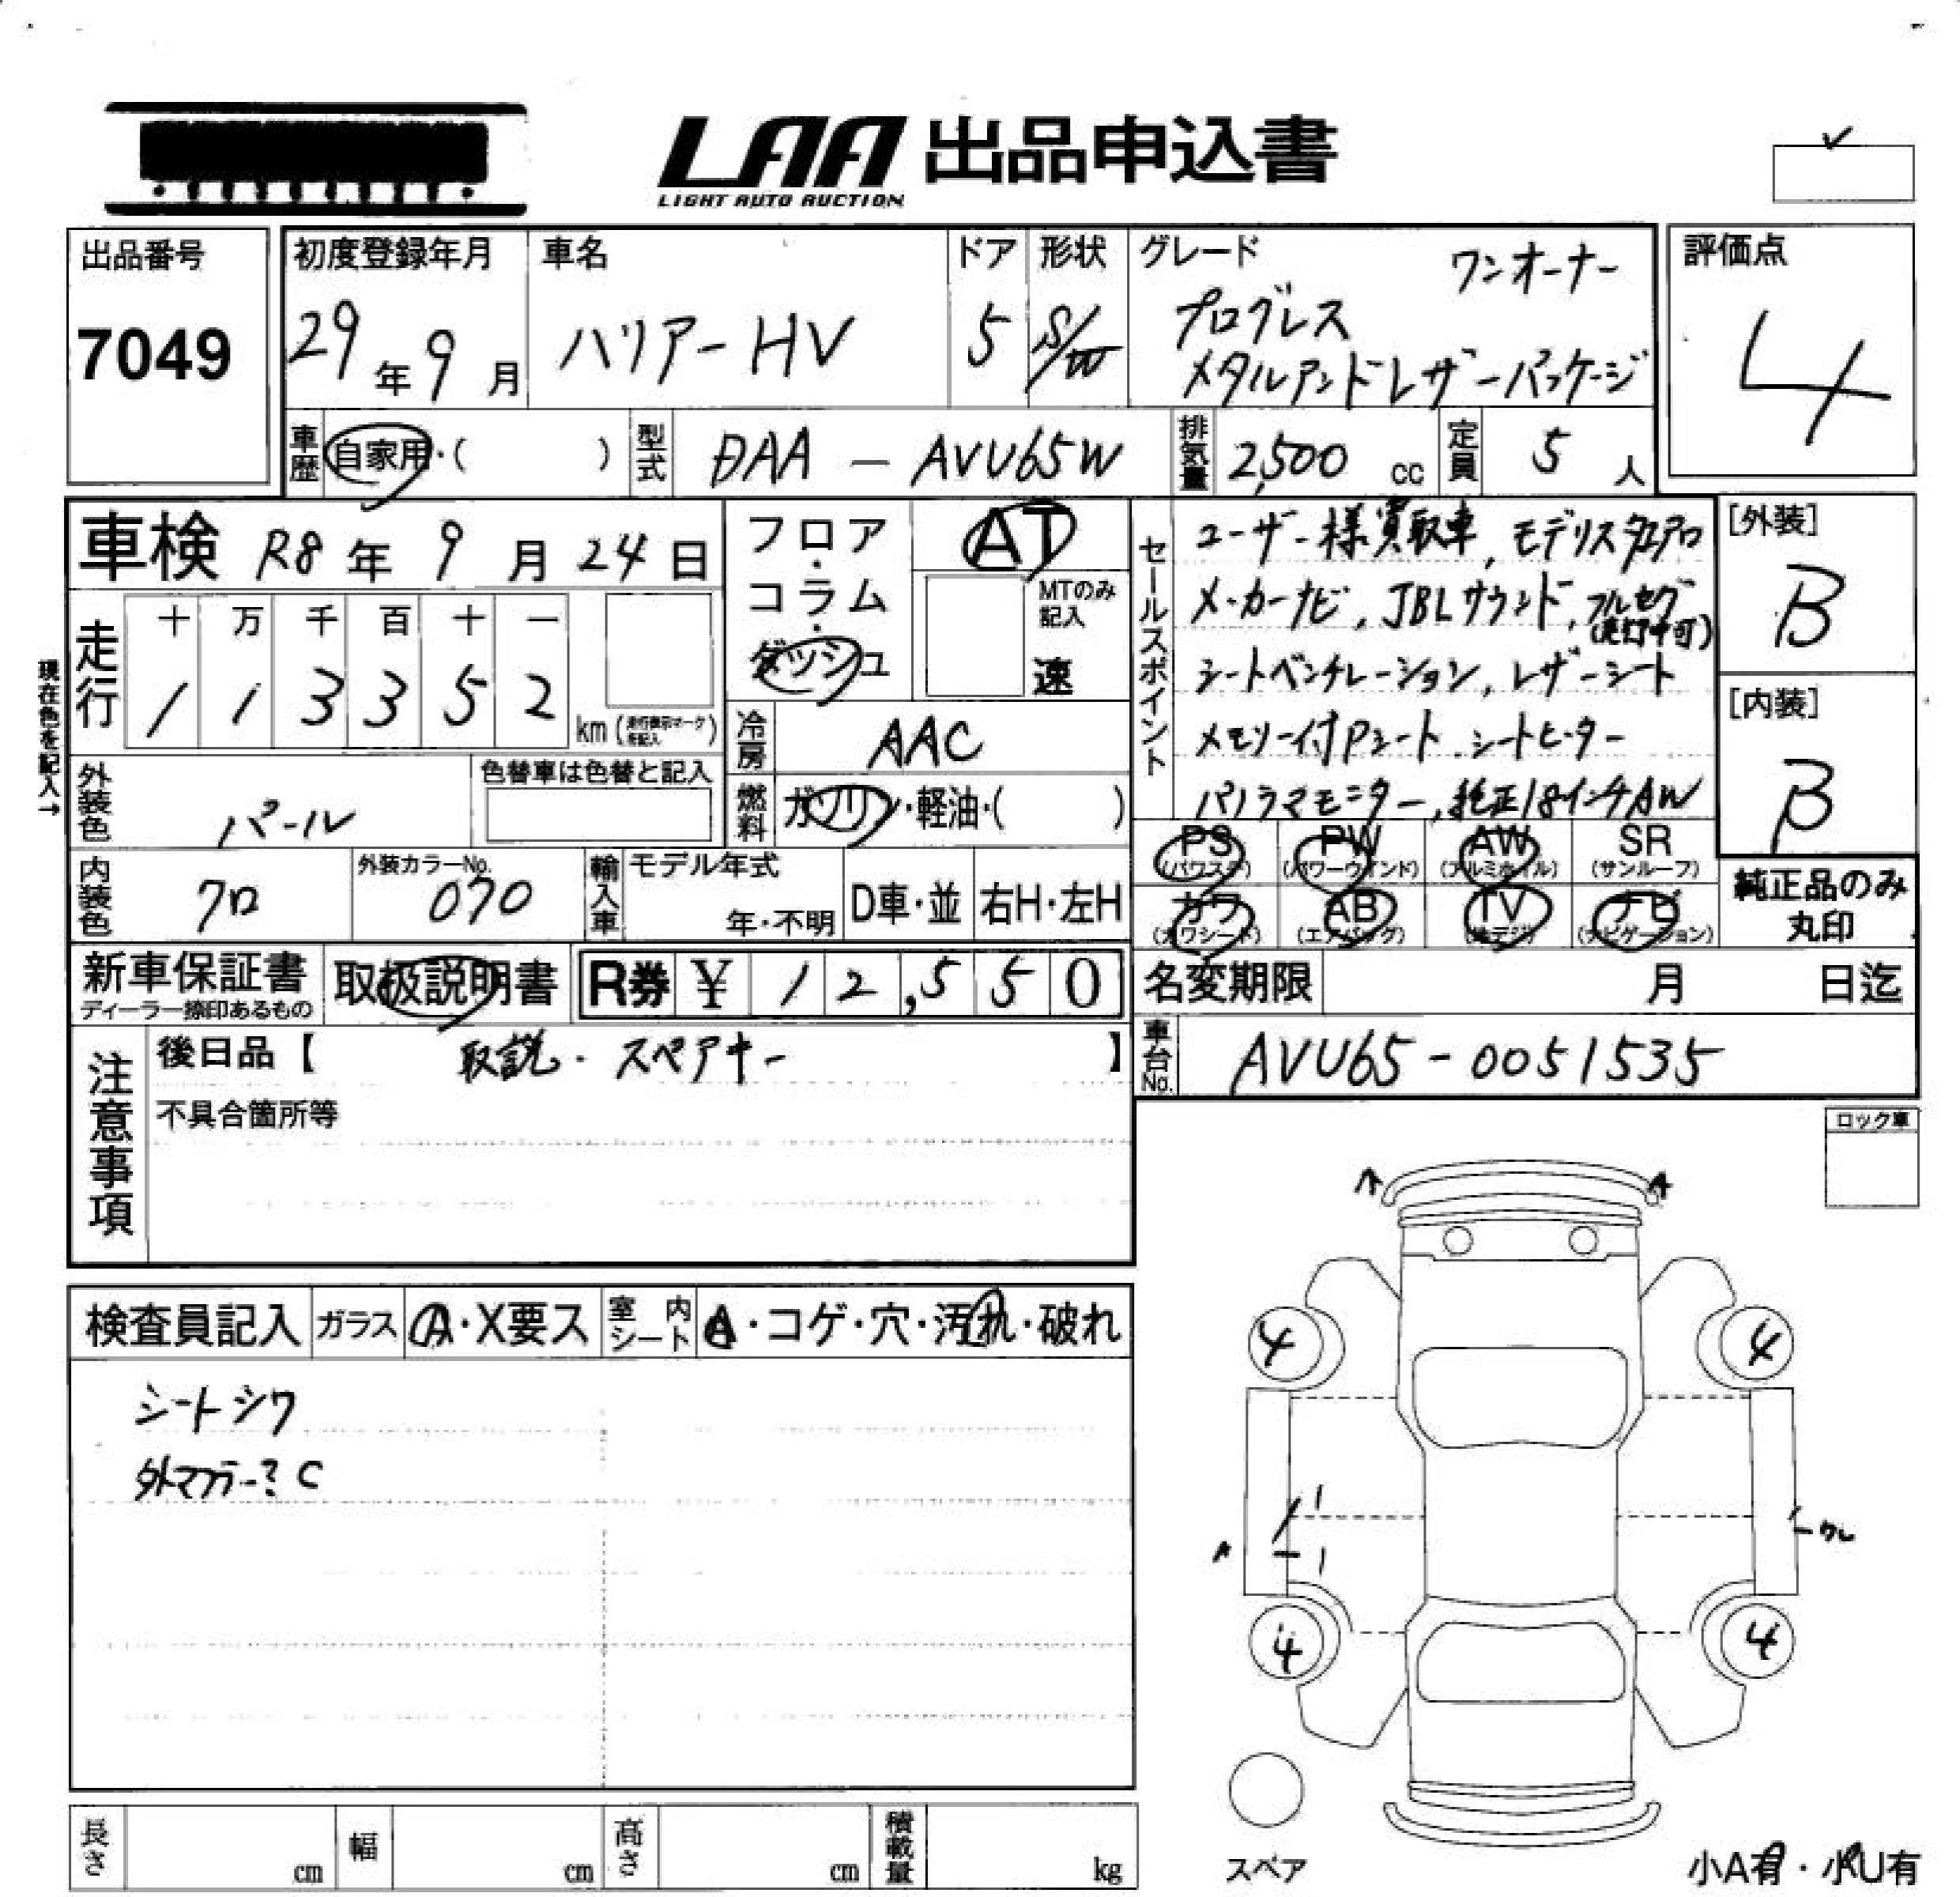 LAA 出品申込書
LIGHT AUTO AUCTION
出品番号
7049
初度登録年月
29年9月
車名
ハリアーHV
ドア
5
形状
S/W
グレード
ワンオーナー
プログレス
メタルアンドレザーパッケージ
評価点
4
車歴
自家用・( )
型式
DAA - AVU65W
排気量
2,500 cc
定員
5人
車検 R8年9月24日
現在色を記入→
走行
十 万 千 百 十 一
1 1 3 3 5 2 km (走行表示マークを記入)
フロア・コラム・ダッシュ
AT
MTのみ記入
速
冷房
AAC
燃料
ガソリン・軽油・( )
外装色
パール
色替車は色替と記入
内装色
クロ
外装カラーNo.
070
輸入車
モデル年式
年・不明
D車・並
右H・左H
セールスポイント
ユーザー様買取車、モデリスタエアロ
メーカーナビ、JBLサウンド、フルセグ
(走行中可)
シートベンチレーション、レザーシート
メモリー付Pシート、シートヒーター
パノラマモニター、純正18インチAW
[外装]
B
[内装]
B
PS (パワステ)
PW (パワーウインド)
AW (アルミホイル)
SR (サンルーフ)
カワ (カワシート)
AB (エアバッグ)
TV (地デジ)
ナビ (ナビゲーション)
純正品のみ丸印
新車保証書
ディーラー捺印あるもの
取扱説明書
R券 ¥ 12,550
名変期限
月 日迄
車台No.
AVU65-0051535
注意事項
後日品【 取説・スペアキー 】
不具合箇所等
ロック車
検査員記入
ガラス
A・X要ス
室内シート
A・コゲ・穴・汚れ・破れ
シートシワ
外マフラー?C
A
A
4
4
1
1
A
ワレ
4
4
スペア
小A有・小U有
長さ cm
幅 cm
高さ cm
積載量 kg